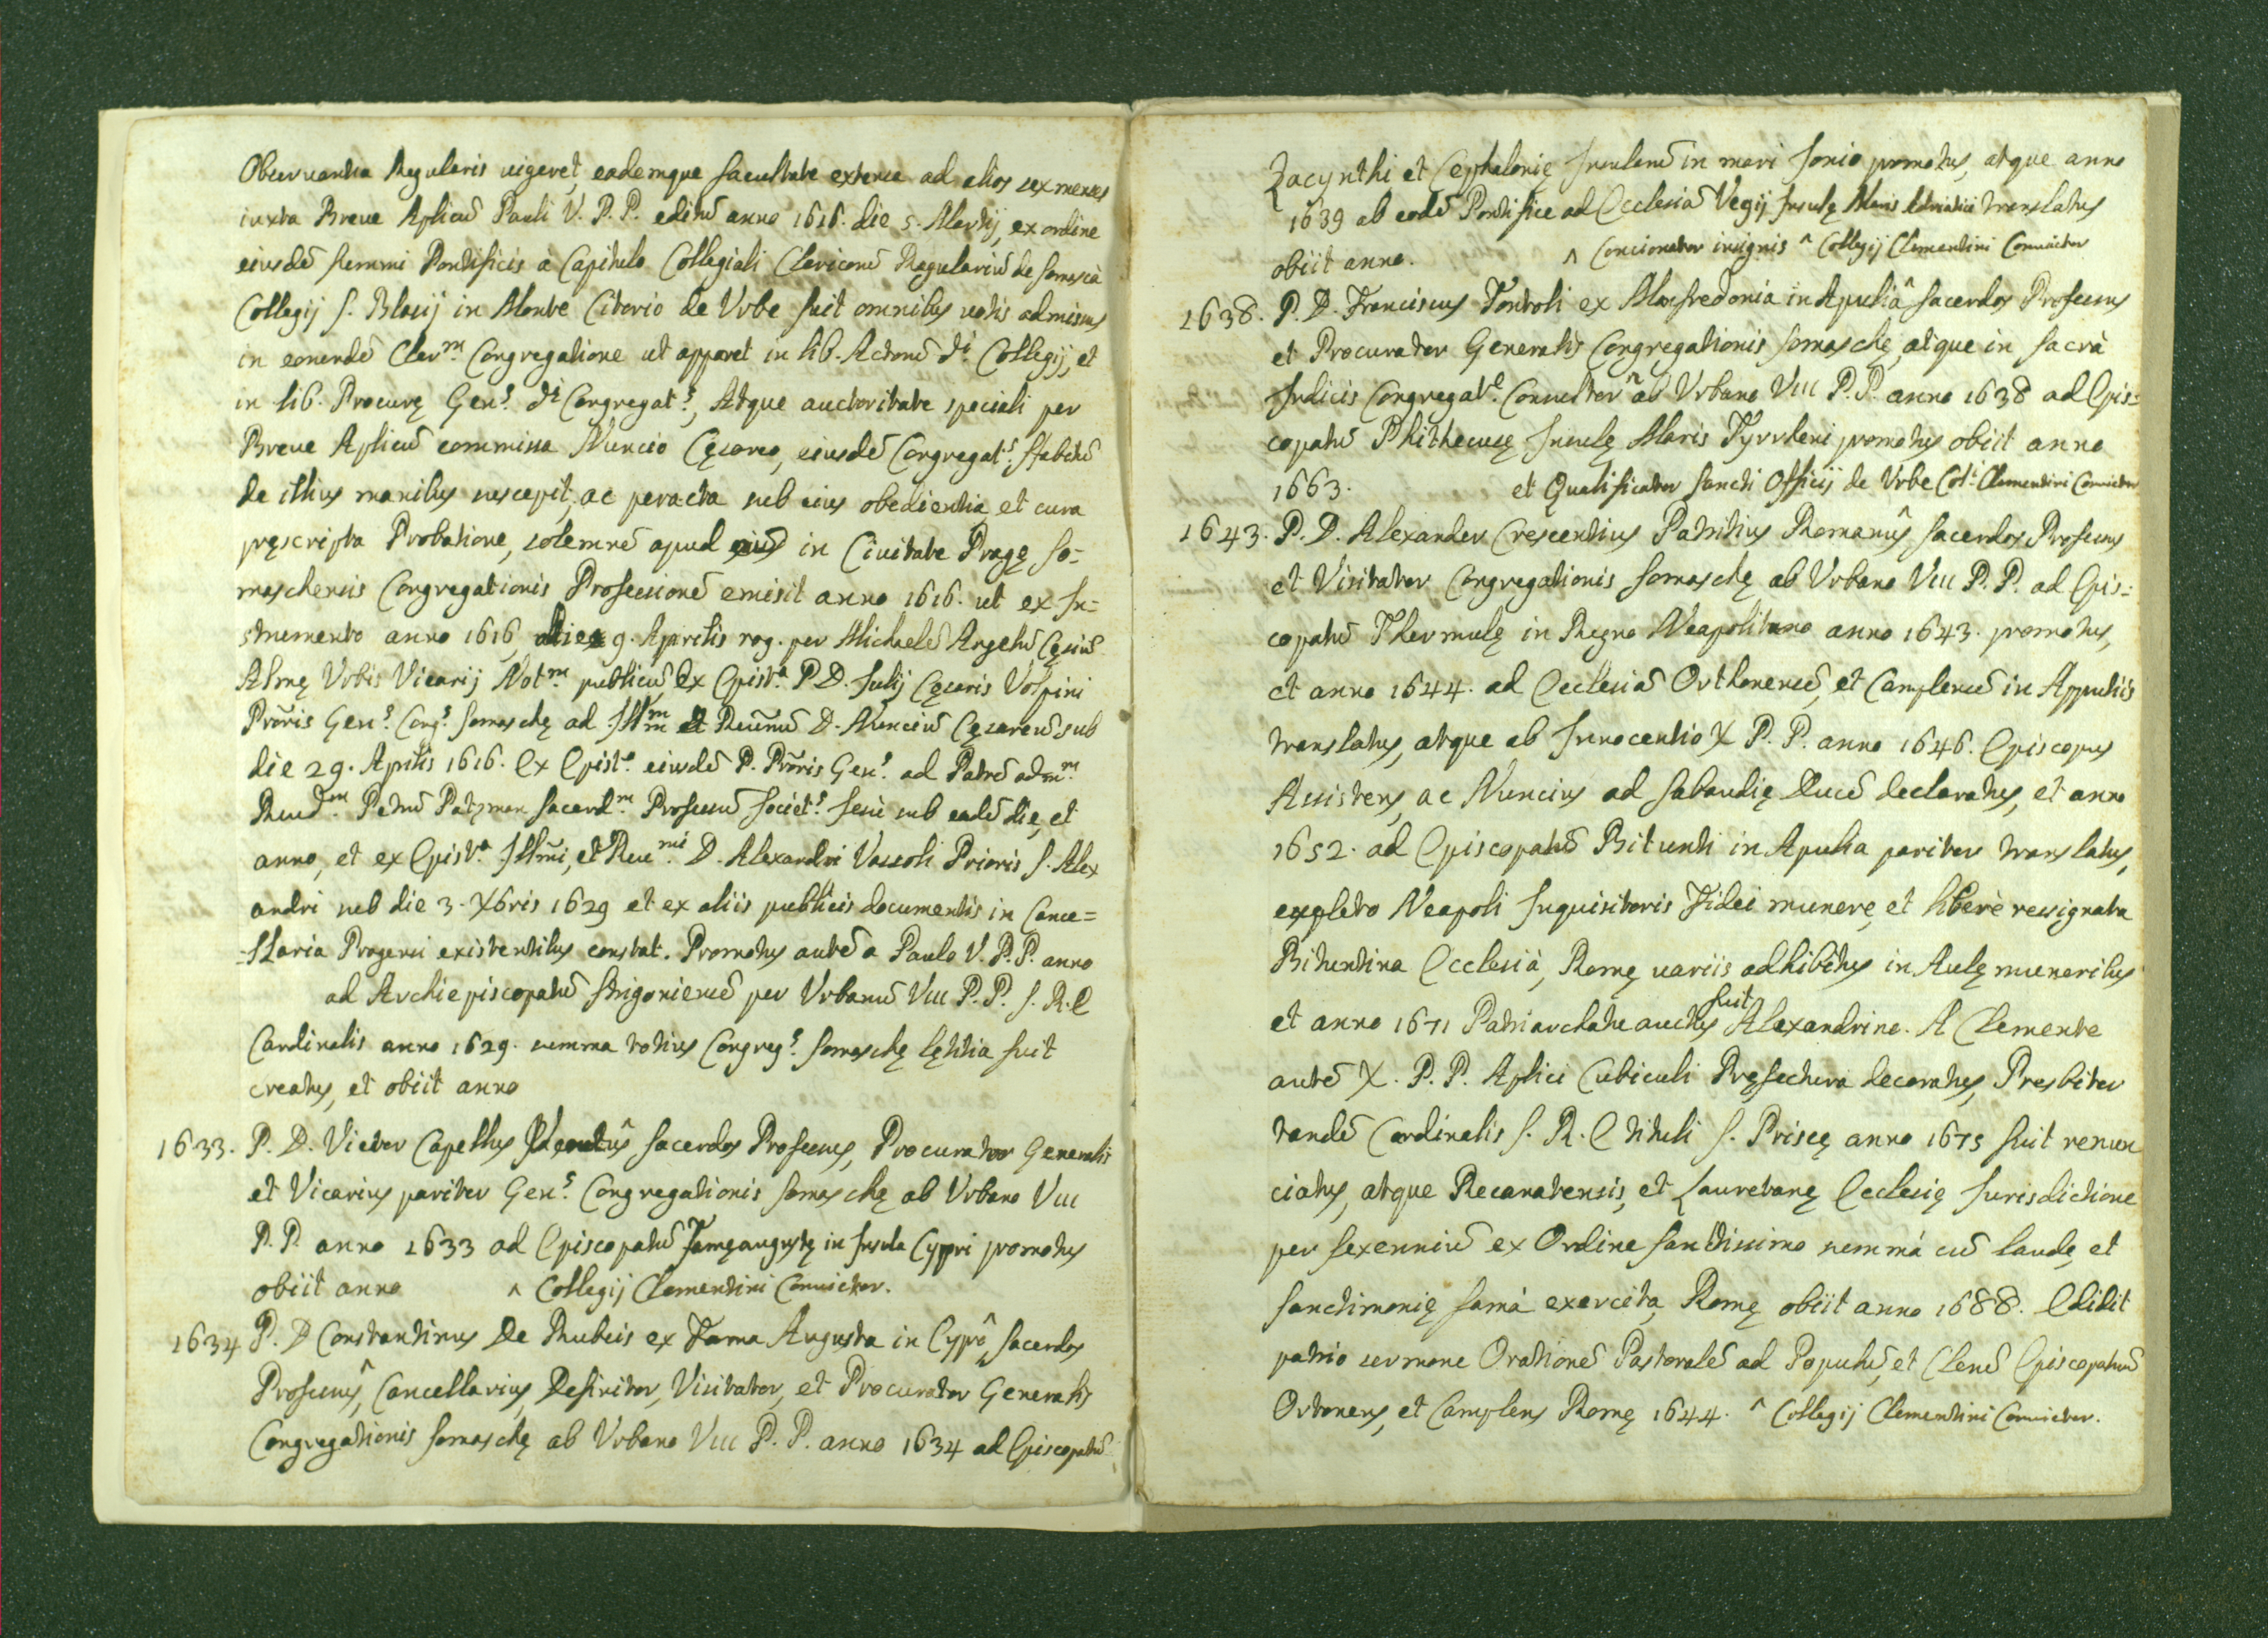 Obseruantia Regularis uigeret, eademque facultate extensa ad alios sex menses
iuxta Breue Aplicū Pauli V. P. P. editū anno 1616. die 5. Martij, ex ordine
eiusdē summi Pontificis à Capitulo Collegiali Clericorū Regulariū de Somascà
Collegij S. Blasij in Monte Citorio de Vrbe fuit omnibus uotis admissus
in eamdē Cler.m Congregatione ut apparet in lib. Actorū d.i Collegij, et
in lib. Procurę Gen.s d.i Congregat.s, Atque auctoritate speciali per
Breue Aplicū commissa Nuncio Cęsareo, eiusdē Congregat.s Habitū
de illius manibus suscepit, ac peracta sub eius obedientia et cura
pręscripta Probatione, solemnē apud in Ciuitate Pragę So=
maschensis Congregationis Professionē emisit anno 1616. ut ex In=
strumento anno 1616 die 9. Aprilis rog. per Michaelē Angelū Cęsiū
Almę Vrbis Vicarij Not.m publicū, Ex Epist.a P. D. Iulij Cęsaris Volpini
Prōris Gen.s Cong.s Somaschę ad Illm̄m et Reūmū D. Nunciū Cęsareū sub
die 29. Aprilis 1616. Ex Epist.a eiusdē P. Prōris Gen.s ad Patrē adm.m
Reud.m Petrū Patzman Sacerd.m Professū Societ.s Iesu sub eadē die, et
anno, et ex Epist.a Illm̄i, et Reu.mi D. Alexandri Vassoli Prioris S. Alex
andri sub die 3. Xbris 1629 et ex aliis publicis documentis in Cance=
=llaria Pragensi existentibus constat. Promotus autē a Paulo V. P. P. anno
ad Archiepiscopatū Strigoniensē per Vrbanū VIII P. P. S. R. E
Cardinalis anno 1629. summa totius Congreg.s Somaschę lętitia fuit
creatus, et obiit anno
1633. P. D. Victor Capellus Venetus^ Sacerdos Professus, Procurator Generalis
et Vicarius pariter Gen.s Congregationis Somaschę ab Vrbano VIII
P. P. anno 1633 ad Episcopatū Famęaugustę in Insula Cypri promotus
obiit anno ^ Collegij Clementini Conuictor.
1634 P. D Constantinus De Rubeis ex Fama Augusta in Cypro^, Sacerdos
Professus^, Cancellarius, Definitor, Visitator, et Procurator Generalis
Congregationis Somaschę ab Vrbano VIII P. P. anno 1634 ad Episcopatū
Zacynthi et Cephalonię Insularū in mari Ionio promotus, atque anno
1639 ab eodē Pontifice ad Ecclesiā Vegij Insulę Maris Adriatici translatus
obiit anno. ^ Concionator insignis ^ Collegij Clementini Conuictor
1638. P. D. Franciscus Tontoli ex Manfredonia in Apulia^ Sacerdos Professus
et Procurator Generalis Congregationis Somaschę, atque in Sacrà
Indicis Congregat.e Consultor^ ab Vrbano VIII P. P. anno 1638 ad Epis=
copatū Phithecusę Insulę Maris Tyrrheni promotus obiit anno
1663. et Qualificator Sancti Officij de Vrbe Col.i Clementini Conuictor
1643. P. D. Alexander Crescentius Patritius Romanus^ Sacerdos Professus
et Visitator Congregationis Somaschę ab Vrbano VIII P. P. ad Epis=
copatū Thermulę in Regno Neapolitano anno 1643. promotus,
et anno 1644. ad Ecclesiā Orthonensē, et Camplensē in Appuliis
translatus, atque ab Innocentio X P. P. anno 1646. Episcopus
Assistens, ac Nuncius ad Sabaudię Ducē declaratus, et anno
1652. ad Episcopatū Bitunti in Apulia pariter translatus,
expleto Neapoli Inquisitoris Fidei munere, et liberè ressignata
Bituntina Ecclesià, Romę uariis adhibitus in Aulę muneribus
et anno 1671 Patriarchatu auctus fuit Alexandrino. A Clemente
autē X. P. P. Aplici Cubiculi Pręfectura decoratus, Presbiter
tandē Cardinalis S. R. E tituli S. Priscę anno 1675 fuit renun
ciatus, atque Recanatensis, et Lauretanę Ecclesię Iurisdictione
per Sexenniū ex Ordine Sanctissimo summà cū laude, et
Sanctimonię famà exercita, Romę obiit anno 1688. Edidit
patrio sermone Orationē Pastoralē ad Populū, et Clerū Episcopatuū
Ortonens, et Camplens Romę 1644. ^ Collegij Clementini Conuictor.